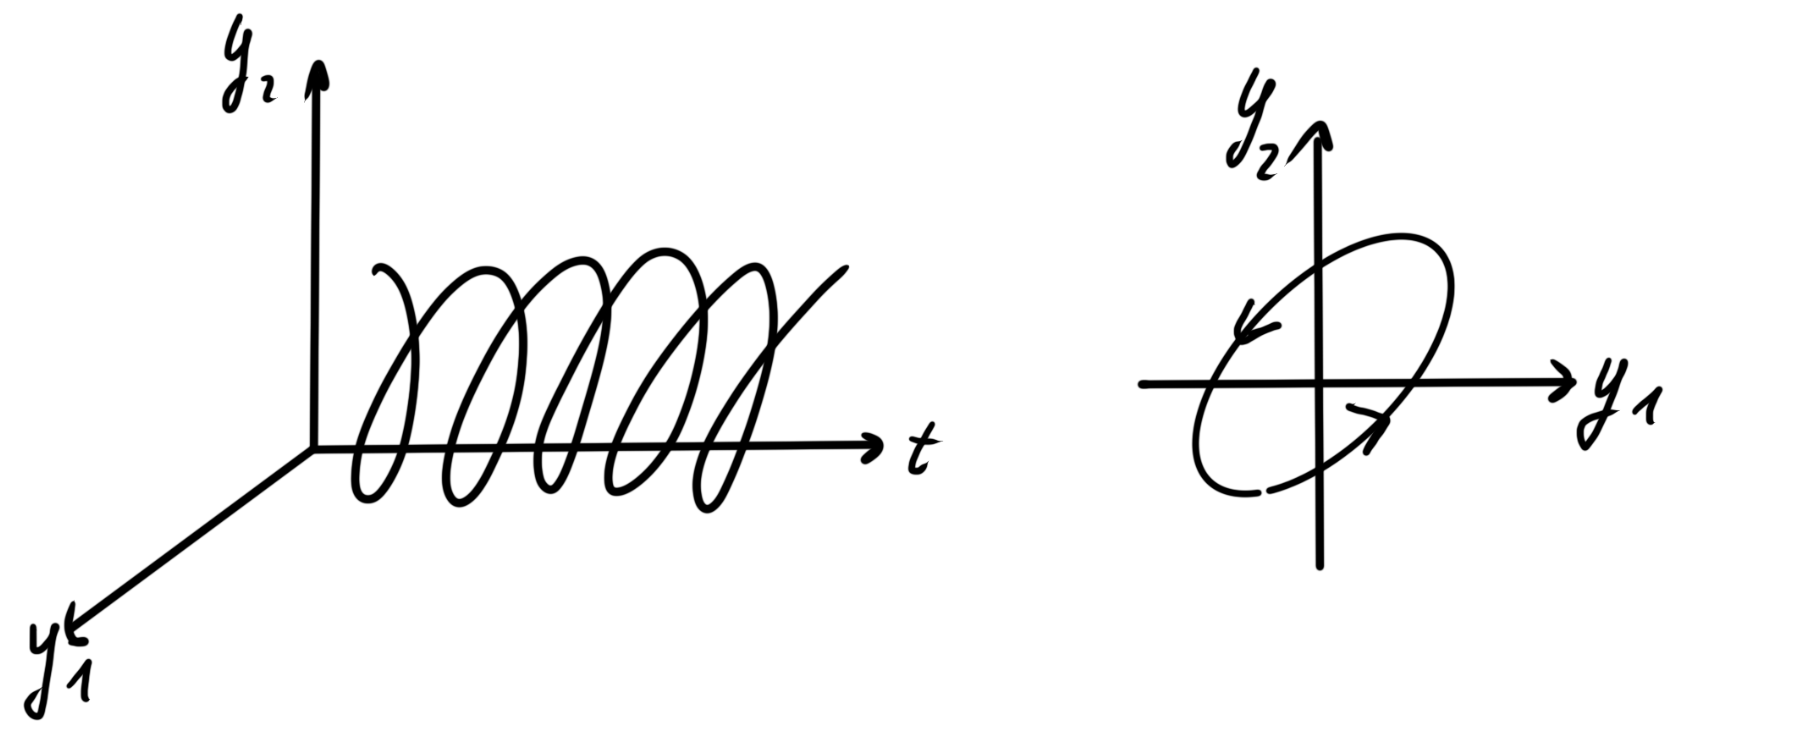 y₂
t
y₁
y₂
y₁